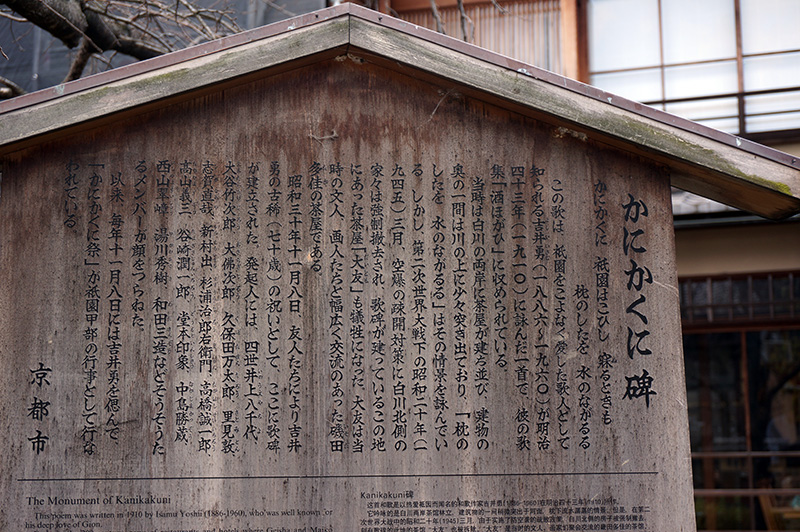 かにかくに碑
かにかくに 祇園はこひし 寐るときも
枕のしたを 水のながるる
この歌は、祇園をこよなく愛した歌人として
知られる吉井勇（一八八六〜一九六〇）が明治
四十三年（一九一〇）に詠んだ一首で、彼の歌
集「酒ほがひ」に収められている。
当時は白川の両岸に茶屋が建ち並び、建物の
奥の一間は川の上に少々突き出ており、「枕の
したを 水のながるる」はその情景を詠んでい
る。しかし、第二次世界大戦下の昭和二十年（一
九四五）三月、空爆の疎開対策に白川北側の
家々は強制撤去され、歌碑が建っているこの地
にあった茶屋「大友」も犠牲になった。大友は当
時の文人、画人たちと幅広く交流のあった磯田
多佳の茶屋である。
昭和三十年十一月八日、友人たちにより吉井
勇の古稀（七十歳）の祝いとして、ここに歌碑
が建立された。発起人には、四世井上八千代、
大谷竹次郎、大佛次郎、久保田万太郎、里見弴、
志賀直哉、新村出、杉浦治郎右衛門、高橋誠一郎、
高山義三、谷崎潤一郎、堂本印象、中島勝蔵、
西山翠嶂、湯川秀樹、和田三造などそうそうた
るメンバーが顔をつらねた。
以来、毎年十一月八日には吉井勇を偲んで、
「かにかくに祭」が祇園甲部の行事として行な
われている。
京都市
The Monument of Kanikakuni
This poem was written in 1910 by Isamu Yoshi (1886-1960), who was well known for
his deep love of Gion.
Kanikakuni碑